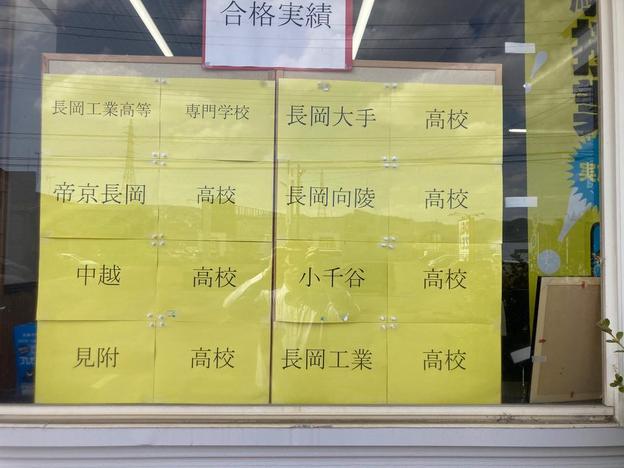 合格実績
長岡工業高等 専門学校
長岡大手 高校
帝京長岡 高校
長岡向陵 高校
中越 高校
小千谷 高校
見附 高校
長岡工業 高校